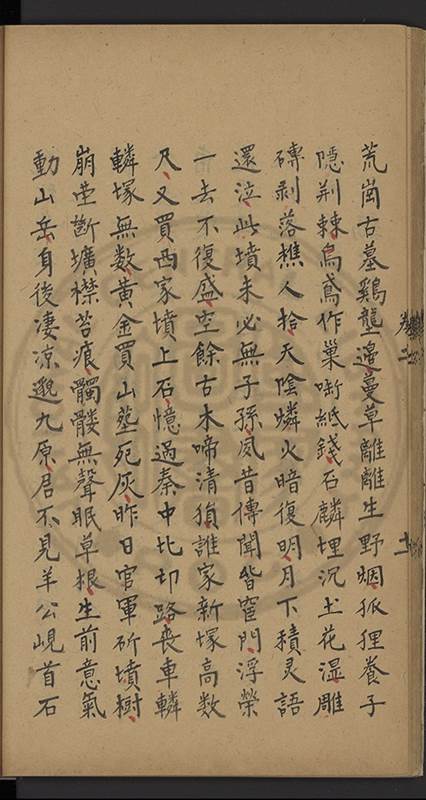 荒崗古墓鷄壟邊蔓草離離生野烟狐狸養子
隱荆棘烏鳶作巢啣紙錢石麟埋沉土花湿雕
磚剥落樵人拾天陰燐火暗復明月下積灵語
還泣此墳未必無子孫夙昔傳聞皆窀門浮榮
一去不復盛空餘古木啼清猿誰家新塚高数
尺又買西家墳上石憶過秦中北邙路丧車轔
轔塚無数黄金買山塟死灰昨日官軍斫墳樹
崩垄斷壙襟苔痕髑髏無聲眠草根生前意氣
動山岳身後凄凉邈九原君不見羊公峴首石